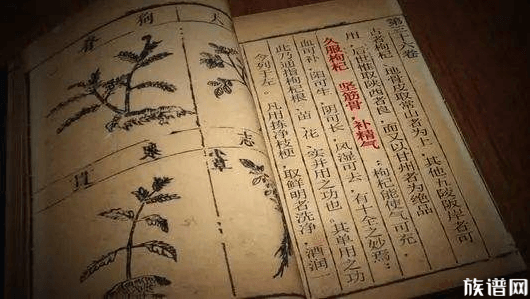 第三十六卷
古者枸杞、地骨皮取常山者为上、其他五陵阪岸者可
用、后世惟取陕西者良、而又以甘州者为绝品
久服枸杞 坚筋骨、补精气 枸杞能使气可充、
血可补、阳可生、阴可长、风湿可去、有十全之妙焉:
此乃通指枸杞根、苗、花、实并用之功也、其单用之功
今列于左。凡用拣净枝梗、取鲜明者洗净、酒润一
狗脊
志
小草
寒
族谱网